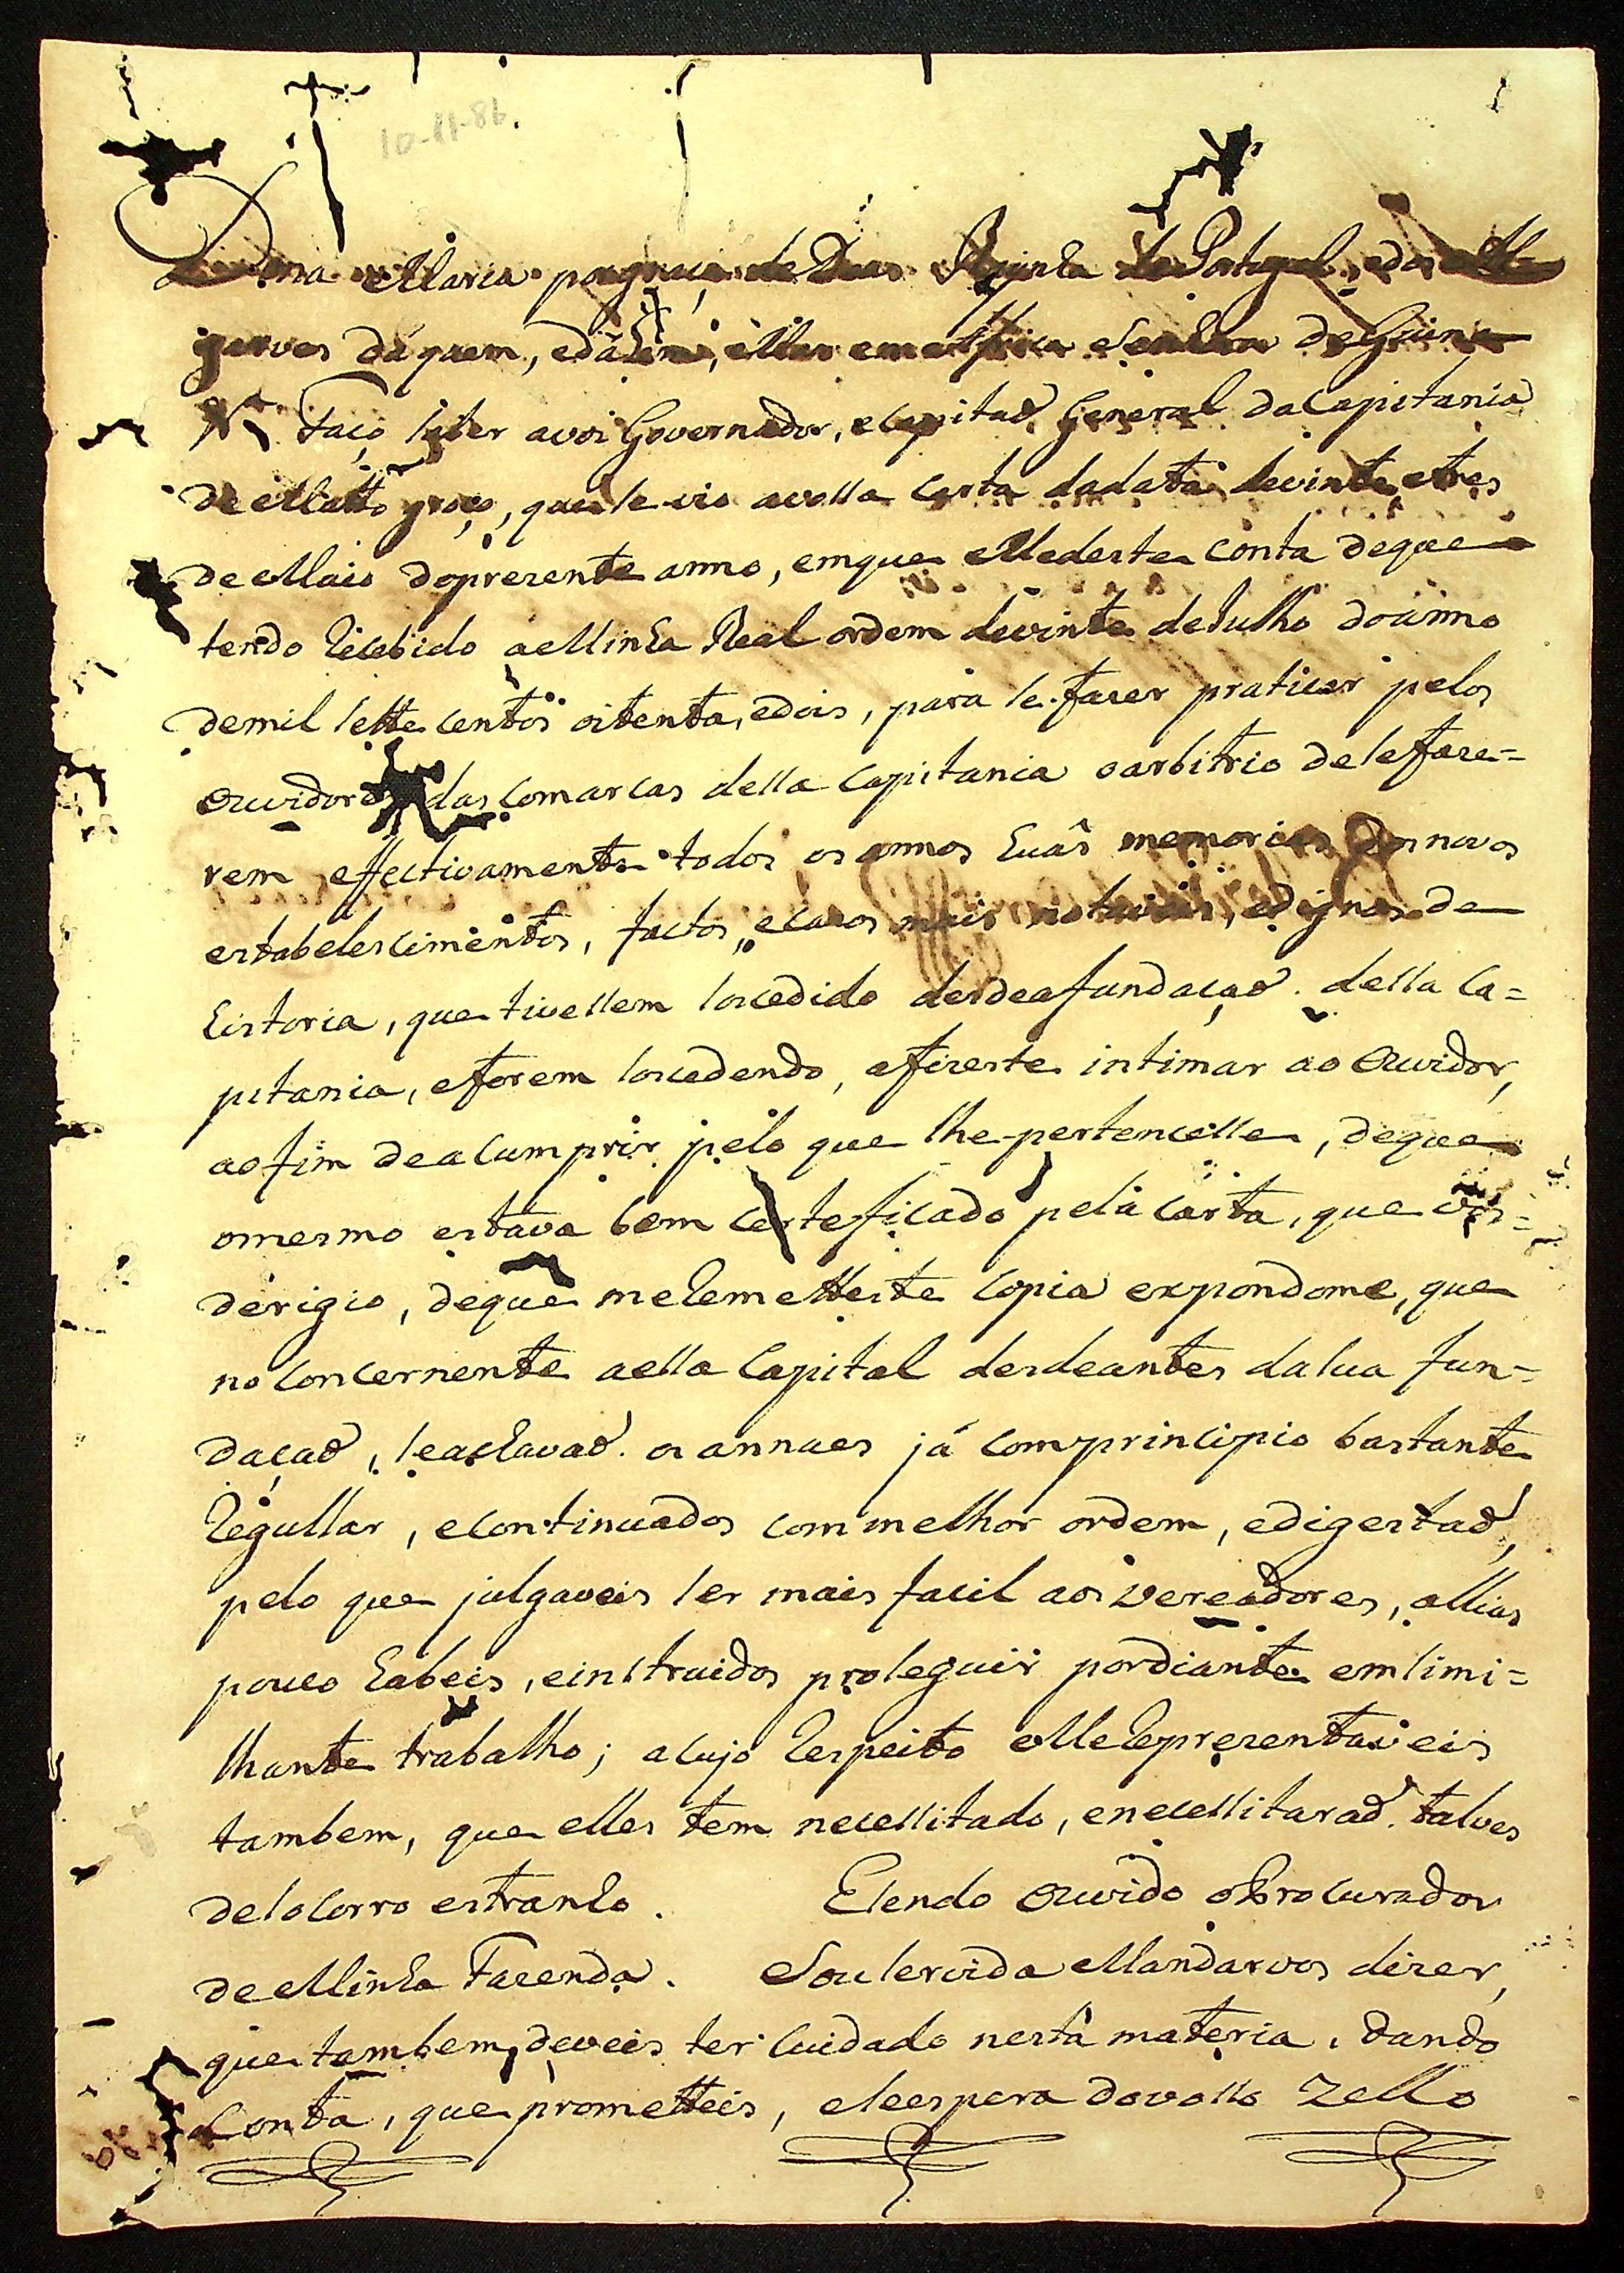 10-11-86.
1
Dona Maria por graça de Deos Raynha de Portugal, edos Al-
garves dáquem, edálem, Mar emAfrica eSenhora deGuiné
&ª Faço saber avos Governador, eCapitaõ General daCapitania
deMatto groço, que se vio avossa carta dadata devinte, etres
deMaio dopresente anno, emque Medestes conta deque
tendo recebido aMinha Real ordem devinte deJulho doanno
demil sette centos oitenta, edois, para se fazer praticar pelos
Ouvidores das Comarcas dessa Capitania oarbitrio desefaze=
rem effectivamente todos os annos huãs memorias dos novos
estabelescimentos, factos, ecazos mais notaveis, edignos de
historia, que tivessem soscedido desdeafundaçaõ dessa Ca=
pitania, eforem soscedendo, afizeste intimar ao Ouvidor,
aofim deacumprir pelo que lhe pertencesse, deque
omesmo estava bem certeficado pela carta, que vos=
dérigio, deque meremetteste copia expondome, que
no concernente aessa Capital desdeantes dasua fun=
daçaõ, seachavaõ os annaes já comprincipio bastante
regullar, econtinuados commelhor ordem, edigestaõ,
pelo que julgaveis ser mais facil aos vereadores, allias
pouco habeis, einstruidos proseguir pordiante emsimi=
lhante trabalho; acujo respeito Merepresentaveis
tambem, que elles tem necessitado, enecessitaraõ talves
desocorro estranho. Esendo ouvido oProcurador
deMinha Fazenda. Souservida Mandarvos dizer,
que tambem deveis ter cuidado nesta materia, dando
conta, que prometteis, eseespera dovosso Zello